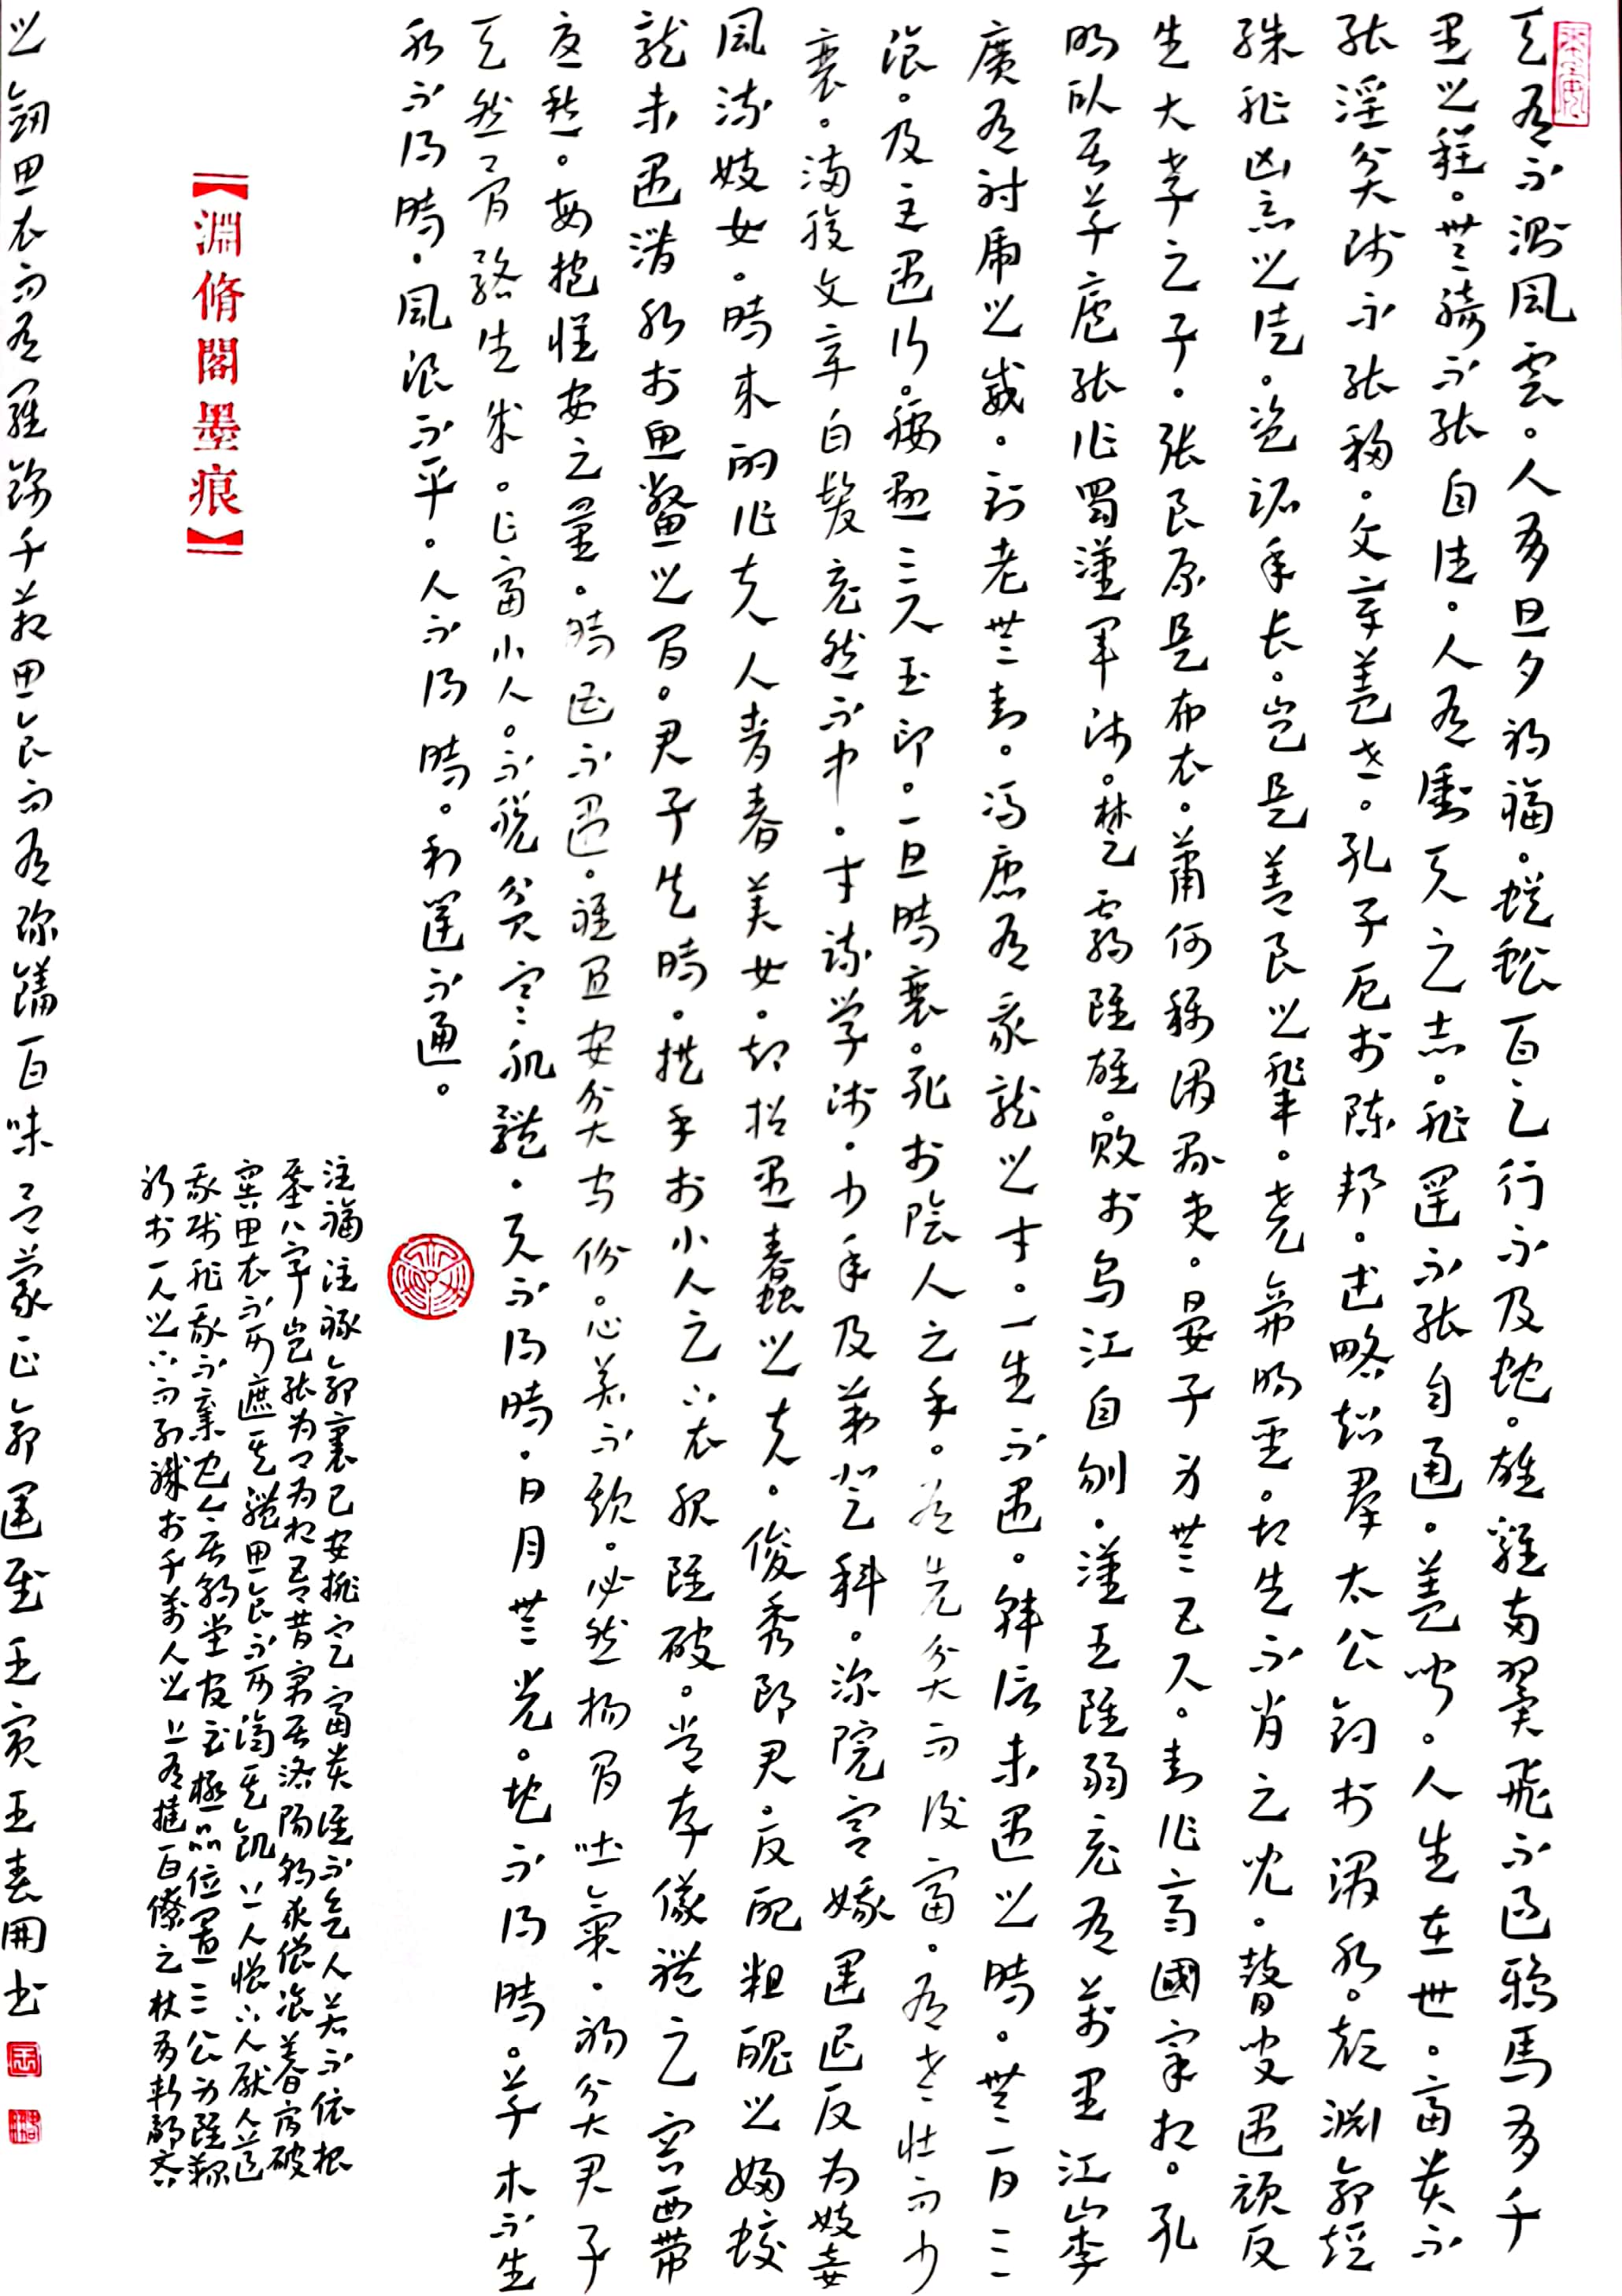 天有不测風雲。人有旦夕禍福。蜈蚣百足行不及蛇。雄雞两翼飛不过鴉馬有千
里之程。無騎不能自往。人有衝天之志。非運不能自通。盖闻。人生在世。富贵不
能淫贫贱不能移。文章盖世。孔子厄於陈邦。武略超群太公钓於渭水。颜渊命短
殊非凶恶之徒。盗跖年长。岂是善良之辈。尧帝明圣。却生不肖之儿。瞽叟愚顽反
生大孝之子。張良原是布衣。萧何称谓县吏。晏子身無五尺。封作齊國宰相。孔
明卧居草庐能作蜀漢军师。楚霸雖雄。败於乌江自刎。漢王雖弱竟有萬里江山李
廣有射虎之威。到老無封。冯唐有乘龍之才。一生不遇。韩信未遇之時。無一日三
湌。及至遇行。腰悬三尺玉印。一旦時衰。死於阴人之手。有先贫而後富。有老壮而少
衰。满腹文章白髪竟然不中。才疏学浅。少年及第登科。深院宫娥運退反为妓妾
風流妓女。時来配作夫人青春美女。却招愚蠢之夫。俊秀郎君。反配粗醜之婦蛟
龍未遇潜水於鱼鳖之间。君子失時。拱手於小人之下衣服雖破。常存儀禮之容面带
忧愁。每抱怀安之量。時遭不遇。祗宜安贫守份。心若不欺。必然扬眉吐氣。初贫君子
天然骨骼生成。乍富小人。不脱贫寒肌體。天不得時。日月無光。地不得時。草木不生
水不得時。風浪不平。人不得時。利運不通。
注福注禄命裏已安排定富贵谁不欲人若不依根
基八字岂能为卿为相吾昔寓居洛陽朝求僧湌暮宿破
窑思衣不可遮其體思食不可濟其飢上人憎下人厭人道
我贱非我不棄也今居朝堂官至極品位置三公身雖鞠
躬於一人之下而列職於千萬人之上有撻百僚之杖有斩鄙吝
【淵脩閣墨痕】
之劍思衣而有羅錦千箱思食而有珍饈百味 吕蒙正命運赋壬寅王春開书